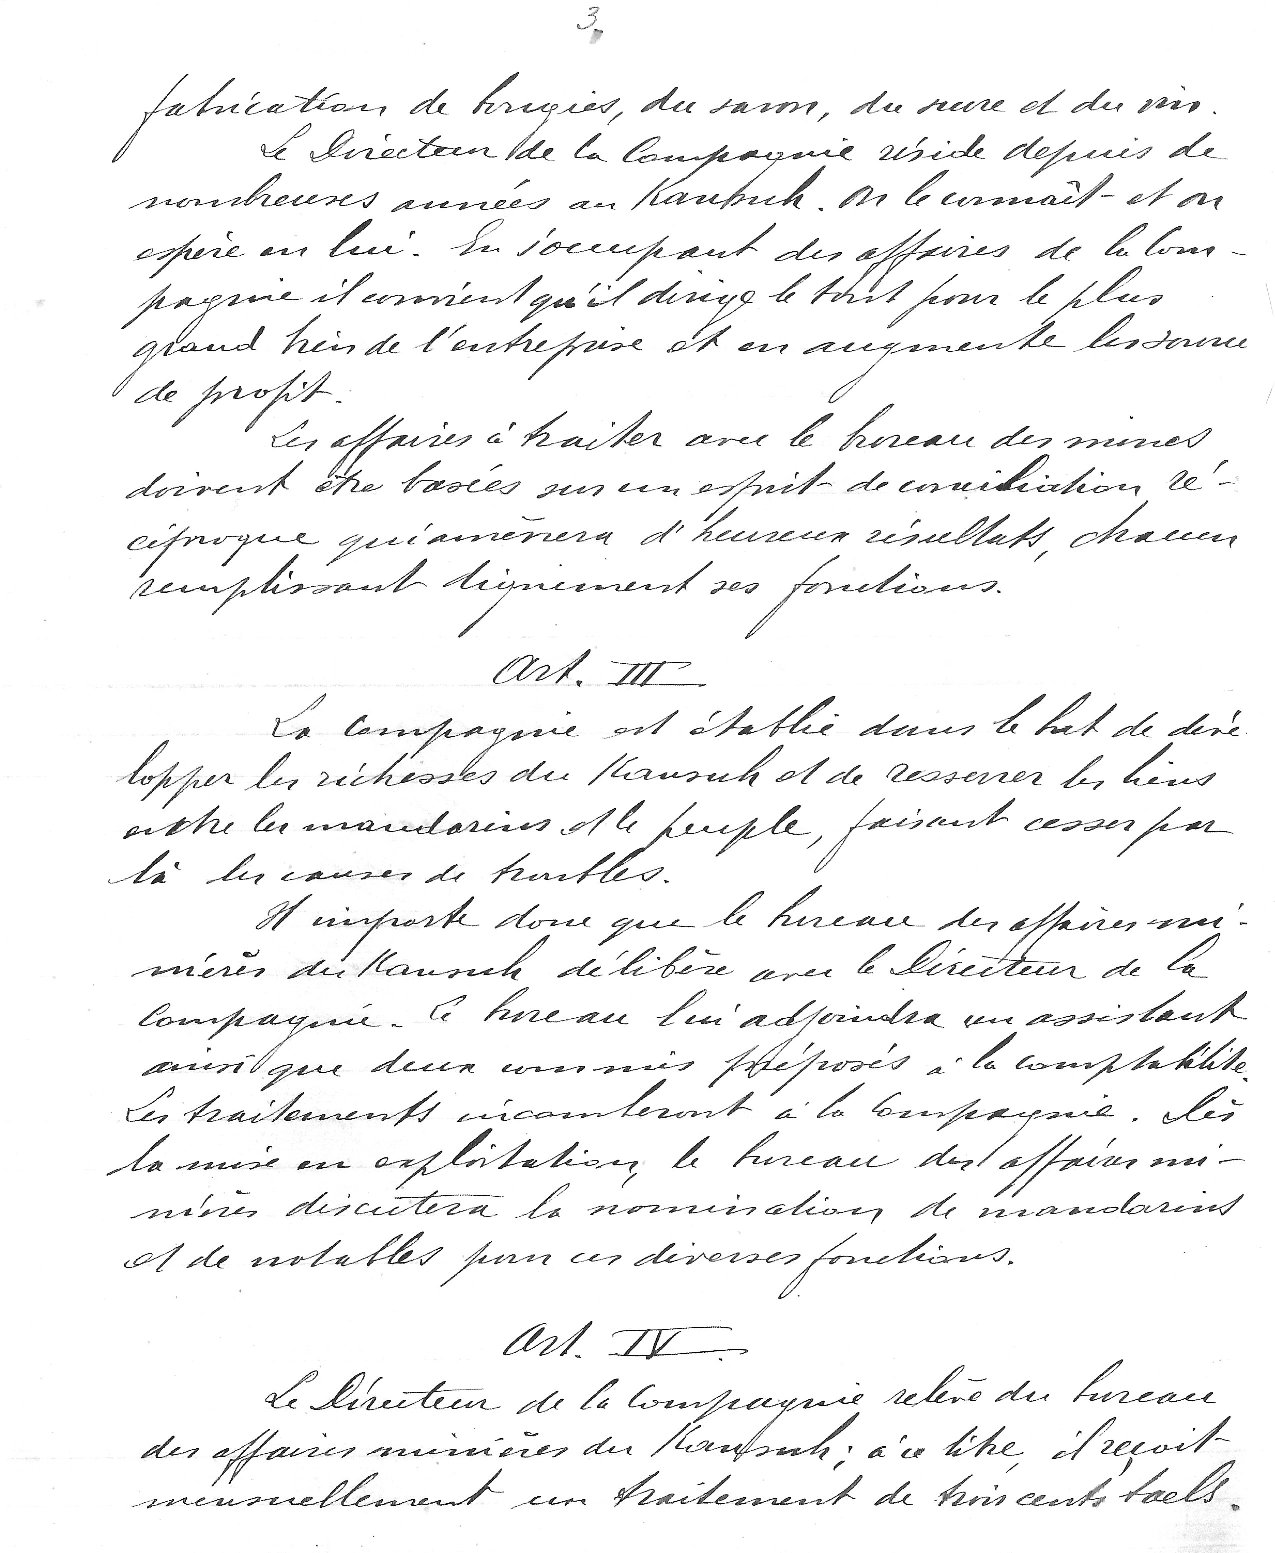 3.
fabrication de bougies, du savon, du sucre et du vin.
Le Directeur de la Compagnie réside depuis de
nombreuses années au Kansuh. On le connaît et on
espère en lui. En s'occupant des affaires de la Com-
pagnie il convient qu'il dirige le tout pour le plus
grand bien de l'entreprise et en augmente les source
de profit.
Les affaires à traiter avec le bureau des mines
doivent être basées sur un esprit de conciliation ré-
ciproque qui amènera d'heureux résultats, chacun
remplissant dignement ses fonctions.
Art. III
La Compagnie est établie dans le but de déve
lopper les richesses du Kansuh et de resserrer les liens
entre les mandarins et le peuple, faisant cesser par
là les causes de troubles.
Il importe donc que le bureau des affaires mi-
nières du Kansuh délibère avec le Directeur de la
Compagnie. Ce bureau lui adjoindra un assistant
ainsi que deux commis préposés à la comptabilité.
Les traitements incomberont à la Compagnie. Dès
la mise en exploitation, le bureau des affaires mi-
nières discutera la nomination de mandarins
et de notables pour ces diverses fonctions.
Art. IV
Le Directeur de la Compagnie relève du bureau
des affaires minières du Kansuh; à ce titre, il reçoit
mensuellement un traitement de trois cents taels.